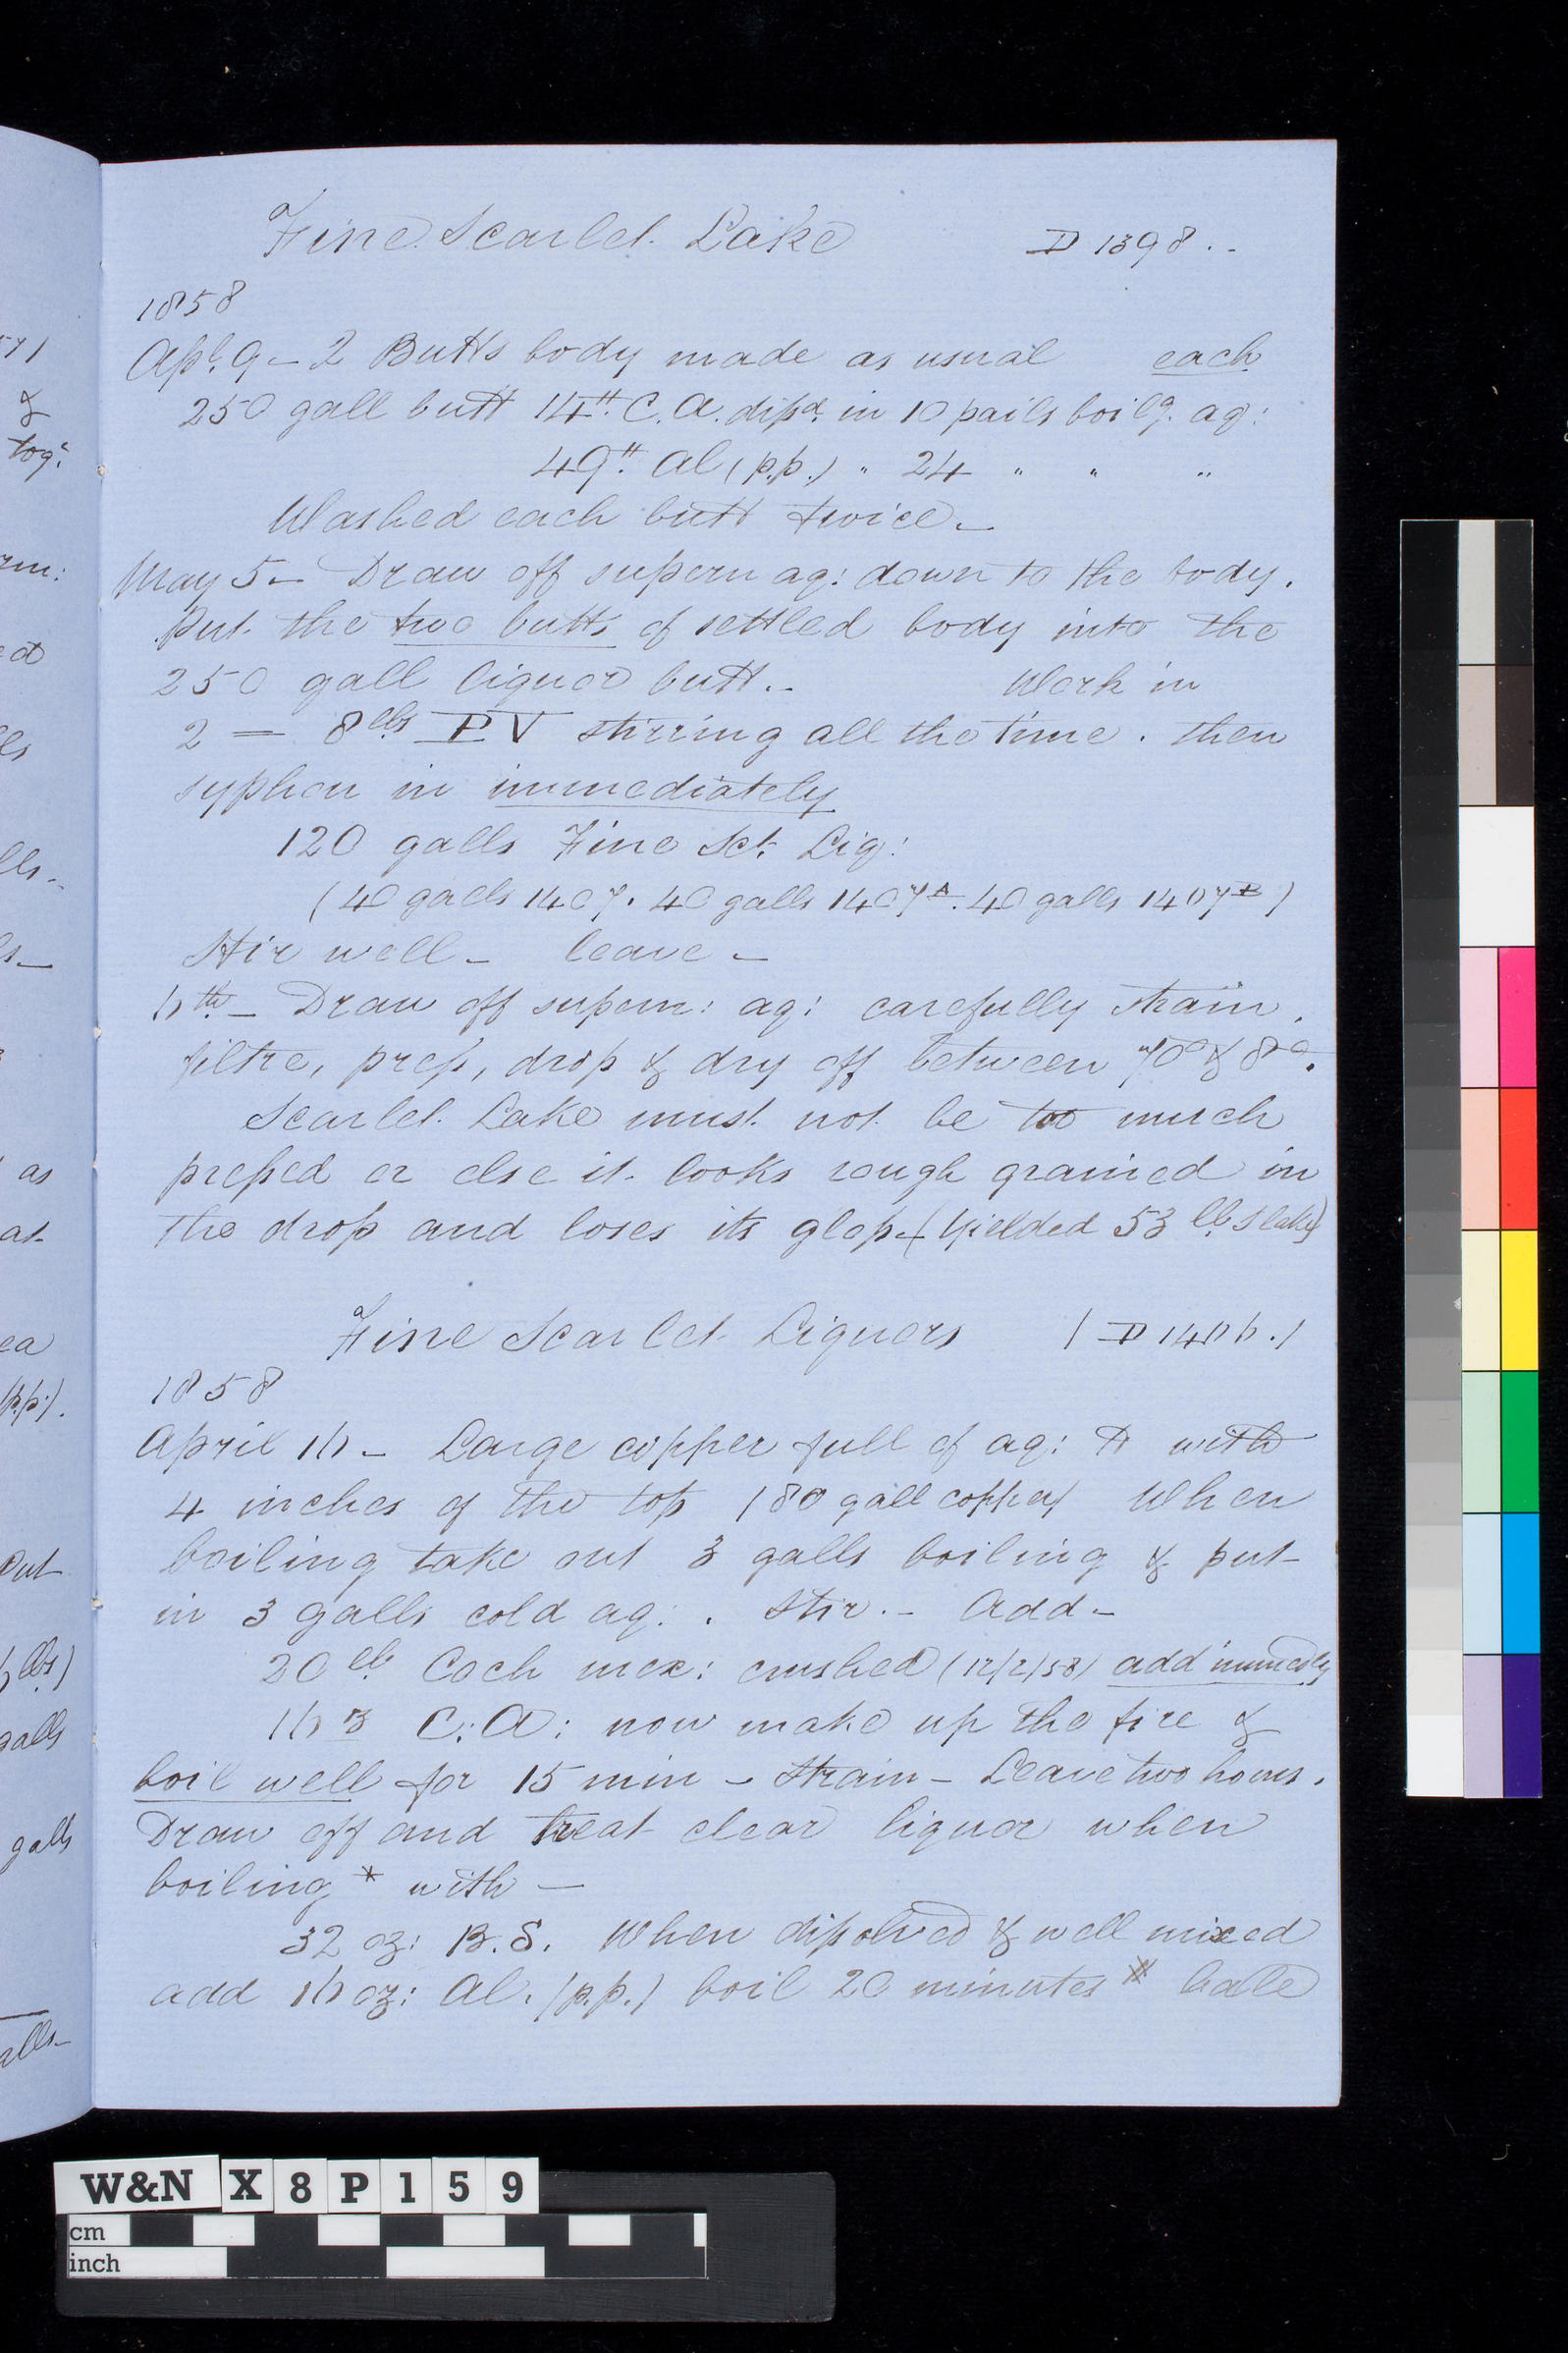 Fine Scarlet Lake D 1398..
1858
Apl. 9 – 2 Butts body made as usual each
250 gall butt 14 lb. C.A. dissd. in 10 pails boilg. aq:
49 lb. Al (p.p.) " 24 " " "
Washed each butt twice –
May 5 – Draw off supern aq: down to the body.
Put the two butts of settled body into the
250 gall liquor butt. – Work in
2 = 8 lbs PV stirring all the time. then
syphon in immediately
120 galls Fine Sct. Liq:
(40 galls 1407. 40 galls 1407 A. 40 galls 1407 B)
Stir well – leave –
6th – Draw off supern: aq: carefully strain.
filtre, press, drop & dry off between 70° & 80°.
Scarlet Lake must not be too much
pressed or else it looks rough grained in
the drop and loses its gloss – (Yielded 53 lbs lake)
Fine Scarlet Liquors (D 1406.)
1858
April 16 – Large copper full of aq: to with
4 inches of the top (80 gall copper) When
boiling take out 3 galls boiling & put
in 3 galls cold aq: . Stir. – Add –
20 lb Coch mex: crushed (12/2/58) add immedly
16 ℥ C:A: now make up the fire &
boil well for 15 min – Strain – Leave two hours.
Draw off and treat clear liquor when
boiling * with –
32 oz: B.S. When dissolved & well mixed
add 16 oz: Al. (p.p.) boil 20 minutes * bale
W&N X 8 P 1 5 9
cm
inch